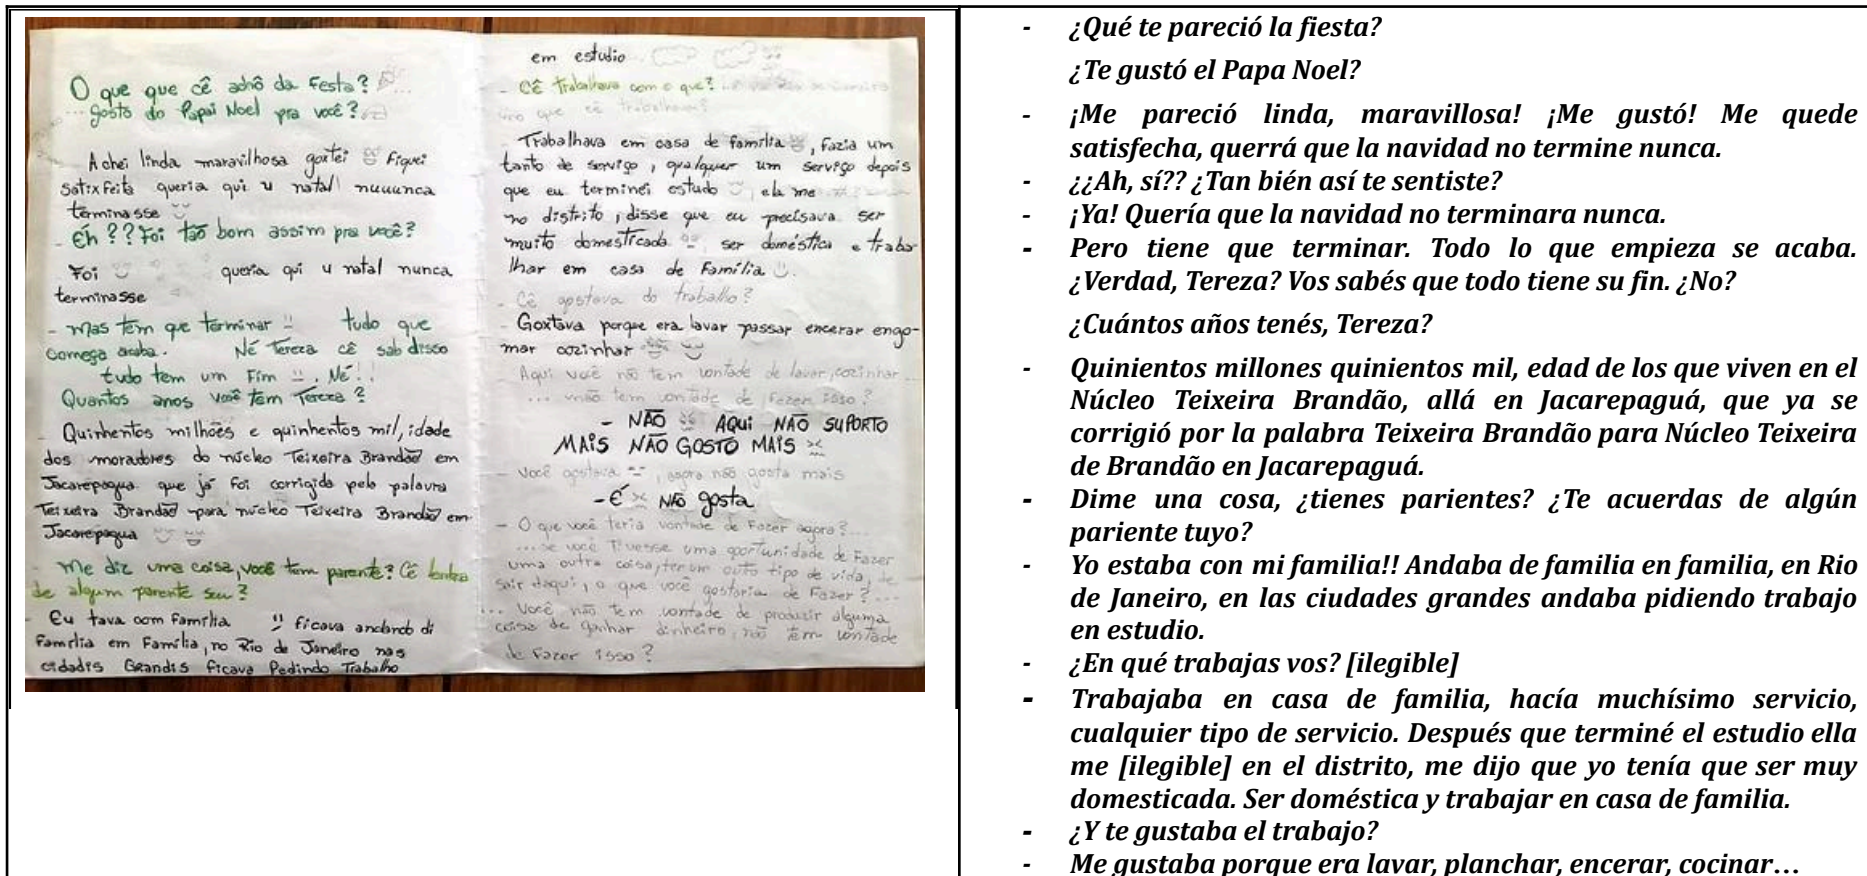 O que que cê achô da Festa?
... gosto do Papai Noel pra você?
Achei linda maravilhosa goxtei Fiquei
Satixfeita queria qui u natal nuuunca
terminasse
- Éh ?? Foi tão bom assim pra você?
Foi queria qui u natal nunca
terminasse
- mas tem que terminar !! tudo que
começa acaba. Né Tereza cê sab disso
tudo tem um Fim !! . Né !!
Quantos anos você tem Tereza ?
- Quinhentos milhões e quinhentos mil, idade
dos moradores do núcleo Teixeira Brandão em
Jacarepagua que já foi corrigido pela palavra
Teixeira Brandão para núcleo Teixeira Brandão em
Jacarepagua
- me diz uma coisa, você tem parente? Cê
de algum parente seu ?
- Eu tava com Família !! Ficava andando di
Família em Família, no Rio de Janeiro nas
cidadis Grandis Ficava Pedindo Trabalho
em estudio
- Cê Trabalhava com o que?
que cê trabalhava?
- Trabalhava em casa de família, fazia um
tanto de serviço, qualquer um serviço depois
que eu terminei estudo, ela me
no distrito, disse que eu precisava ser
muito domesticada ser doméstica e traba-
lhar em casa de Família
- Cê gostava do trabalho?
- Goxtava porque era lavar passar encerar engo-
mar cozinhar
- Aqui você não tem vontade de lavar, cozinhar ...
... tem vontade de fazer isso ?
- NÃO AQUI NÃO SUPORTO
MAIS NÃO GOSTO MAIS
- Você gostava, agora não gosta mais
- É NÃO gosta
- O que você teria vontade de Fazer agora ? ...
... se você Tivesse uma oportunidade de Fazer
uma outra coisa, ter um outo tipo de vida, de
sair daqui, o que você gostaria de Fazer ? ...
... Você não tem vontade de produzir alguma
coisa de ganhar dinheiro, não tem vontade
de Fazer isso ?
- ¿Qué te pareció la fiesta?
¿Te gustó el Papa Noel?
- ¡Me pareció linda, maravillosa! ¡Me gustó! Me quede
satisfecha, querrá que la navidad no termine nunca.
- ¿¿Ah, sí?? ¿Tan bién así te sentiste?
- ¡Ya! Quería que la navidad no terminara nunca.
- Pero tiene que terminar. Todo lo que empieza se acaba.
¿Verdad, Tereza? Vos sabés que todo tiene su fin. ¿No?
¿Cuántos años tenés, Tereza?
- Quinientos millones quinientos mil, edad de los que viven en el
Núcleo Teixeira Brandão, allá en Jacarepaguá, que ya se
corrigió por la palabra Teixeira Brandão para Núcleo Teixeira
de Brandão en Jacarepaguá.
- Dime una cosa, ¿tienes parientes? ¿Te acuerdas de algún
pariente tuyo?
- Yo estaba con mi familia!! Andaba de familia en familia, en Rio
de Janeiro, en las ciudades grandes andaba pidiendo trabajo
en estudio.
- ¿En qué trabajas vos? [ilegible]
- Trabajaba en casa de familia, hacía muchísimo servicio,
cualquier tipo de servicio. Después que terminé el estudio ella
me [ilegible] en el distrito, me dijo que yo tenía que ser muy
domesticada. Ser doméstica y trabajar en casa de familia.
- ¿Y te gustaba el trabajo?
- Me gustaba porque era lavar, planchar, encerar, cocinar…